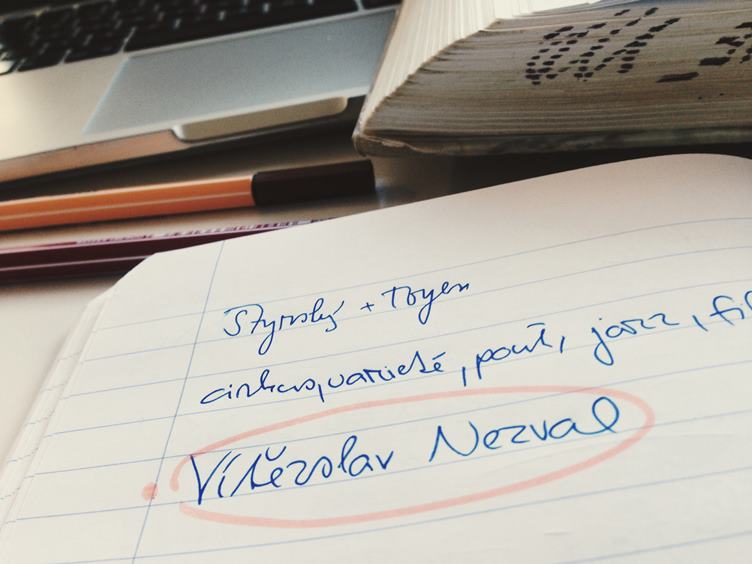 Štyrský + Toyen
cirkus, varieté, pouť, jazz, fil
Vítězslav Nezval